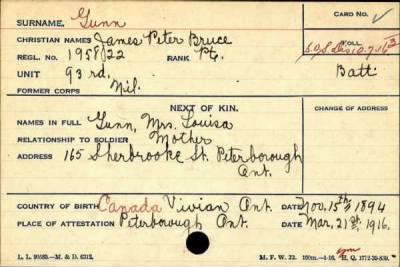 SURNAME. Gunn CARD NO.
CHRISTIAN NAMES James Peter Bruce FOLL.
REGL. NO. 195822 RANK Pte. S.O.S. Dis 10-7-16
UNIT 93 rd. Batt.
FORMER CORPS Nil.
NEXT OF KIN. CHANGE OF ADDRESS
NAMES IN FULL Gunn, Mrs. Louisa
RELATIONSHIP TO SOLDIER Mother
ADDRESS 165 Sherbrooke St. Peterborough
Ont.
COUNTRY OF BIRTH Canada Vivian Ont. DATE Nov. 15th 1894
PLACE OF ATTESTATION Peterboro Ont. DATE Mar. 21st. 1916.
L. L. 90589.—M. & D. 6212. M. F. W. 22. 100m.—1-16. H. Q. 1772-39-839.